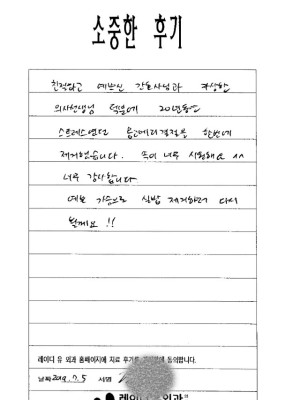 소중한 후기
친절하고 예쁘신 간호사님과 자상한
의사선생님 덕분에 20년동안
스트레스였던 몽고메리결절을 한번에
제거했습니다. 속이 너무 시원해요 ^^
너무 감사합니다
예쁜 가슴으로 실밥 제거하러 다시
올께요 !!
레이디 유 외과 홈페이지에 치료 후기를 동의합니다.
날짜 2019. 7. 5 서명
레이디 외과